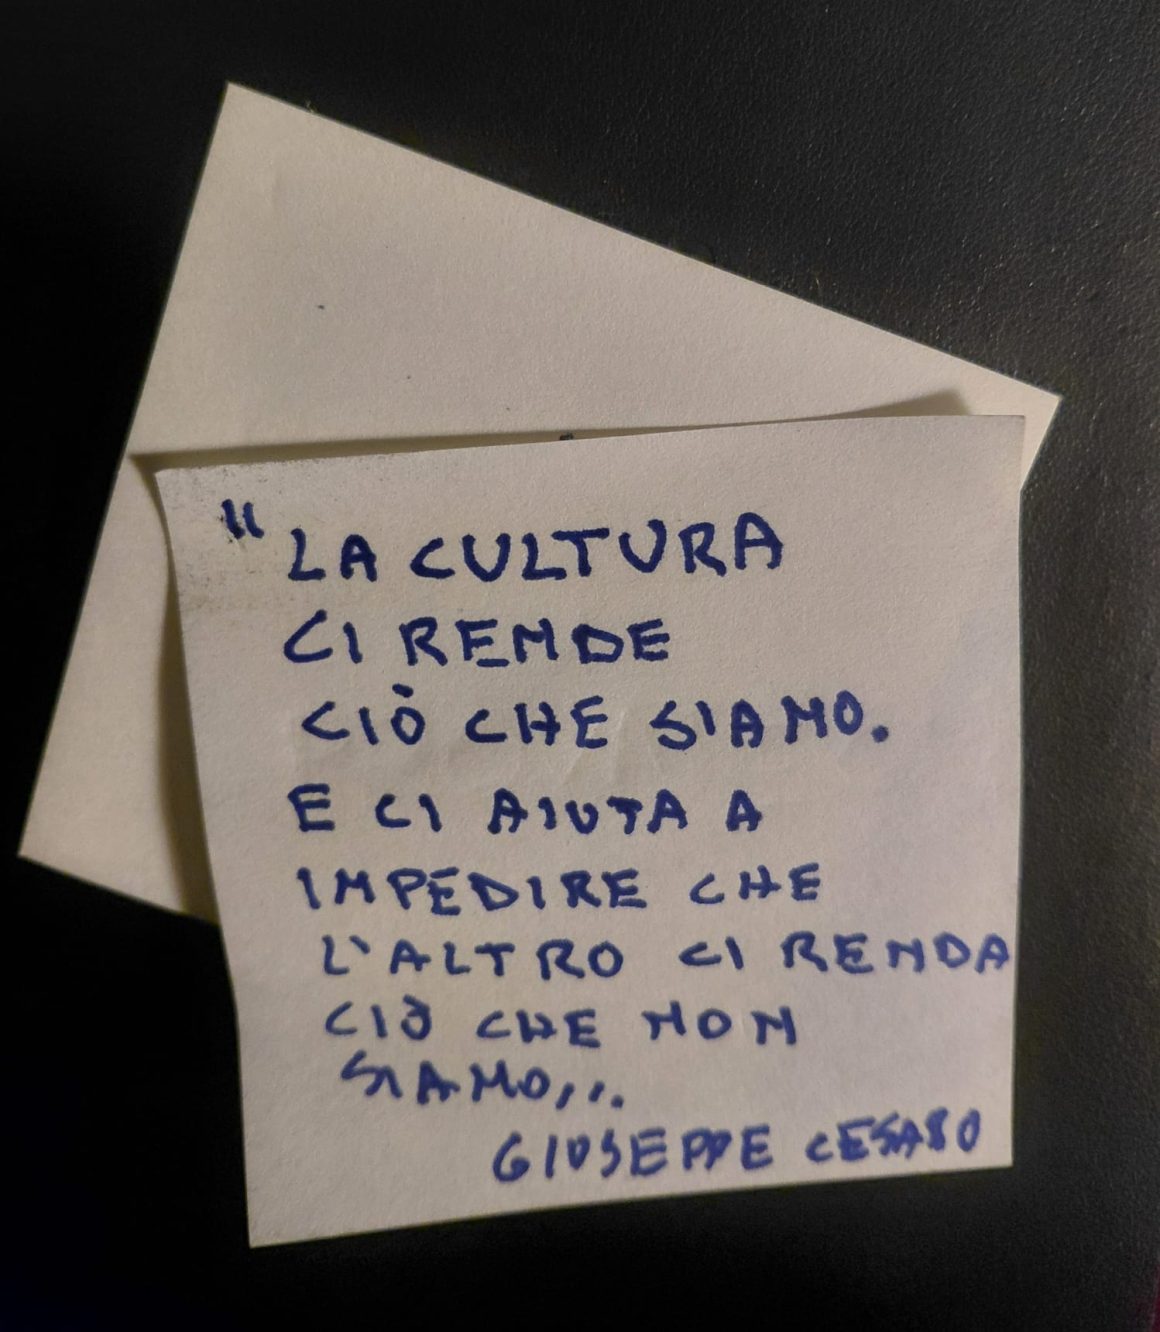 "LA CULTURA
CI RENDE
CIÒ CHE SIAMO.
E CI AIUTA A
IMPEDIRE CHE
L'ALTRO CI RENDA
CIÒ CHE NON
SIAMO...
GIUSEPPE CESARO